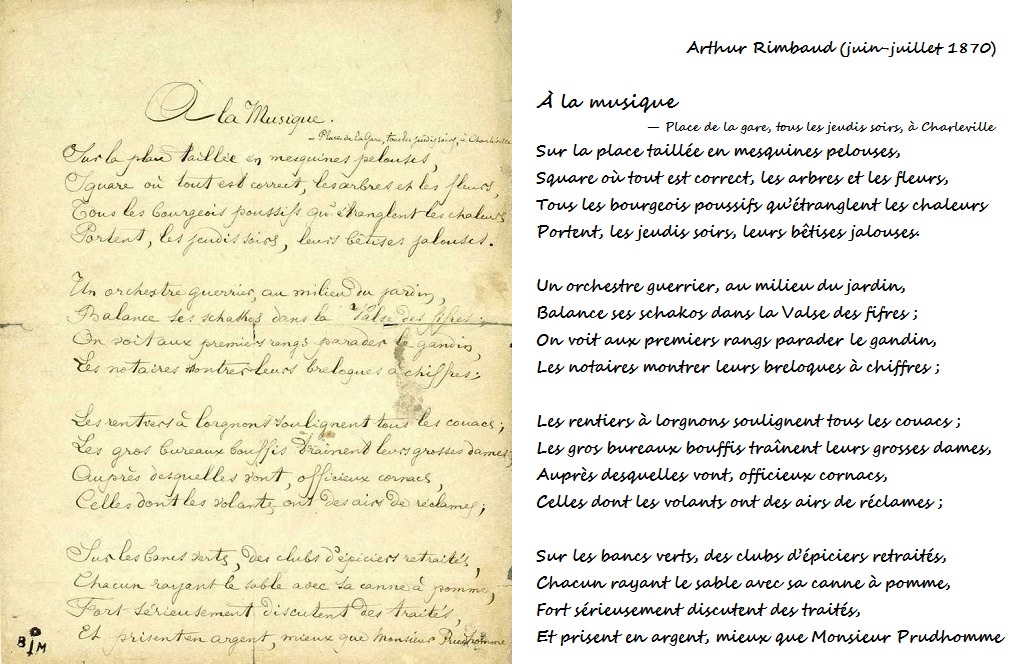 À la Musique.
— Place de la Gare, tous les jeudis soirs, à Charleville
Sur la place taillée en mesquines pelouses,
Square où tout est correct, les arbres et les fleurs,
Tous les bourgeois poussifs qu'étranglent les chaleurs
Portent, les jeudis soirs, leurs bêtises jalouses.
Un orchestre guerrier, au milieu du jardin,
Balance ses schakos dans la Valse des fifres :
On voit aux premiers rangs parader le gandin,
Les notaires montrer leurs breloques à chiffres ;
Les rentiers à lorgnons soulignent tous les couacs ;
Les gros bureaux bouffis traînent leurs grosses dames,
Auprès desquelles vont, officieux cornacs,
Celles dont les volants ont des airs de réclames ;
Sur les bancs verts, des clubs d'épiciers retraités,
Chacun rayant le sable avec sa canne à pomme,
Fort sérieusement discutent des traités,
Et prisent en argent, mieux que Monsieur Prudhomme
B M
Arthur Rimbaud (juin-juillet 1870)
À la musique
— Place de la gare, tous les jeudis soirs, à Charleville
Sur la place taillée en mesquines pelouses,
Square où tout est correct, les arbres et les fleurs,
Tous les bourgeois poussifs qu'étranglent les chaleurs
Portent, les jeudis soirs, leurs bêtises jalouses.
Un orchestre guerrier, au milieu du jardin,
Balance ses schakos dans la Valse des fifres ;
On voit aux premiers rangs parader le gandin,
Les notaires montrer leurs breloques à chiffres ;
Les rentiers à lorgnons soulignent tous les couacs ;
Les gros bureaux bouffis traînent leurs grosses dames,
Auprès desquelles vont, officieux cornacs,
Celles dont les volants ont des airs de réclames ;
Sur les bancs verts, des clubs d'épiciers retraités,
Chacun rayant le sable avec sa canne à pomme,
Fort sérieusement discutent des traités,
Et prisent en argent, mieux que Monsieur Prudhomme